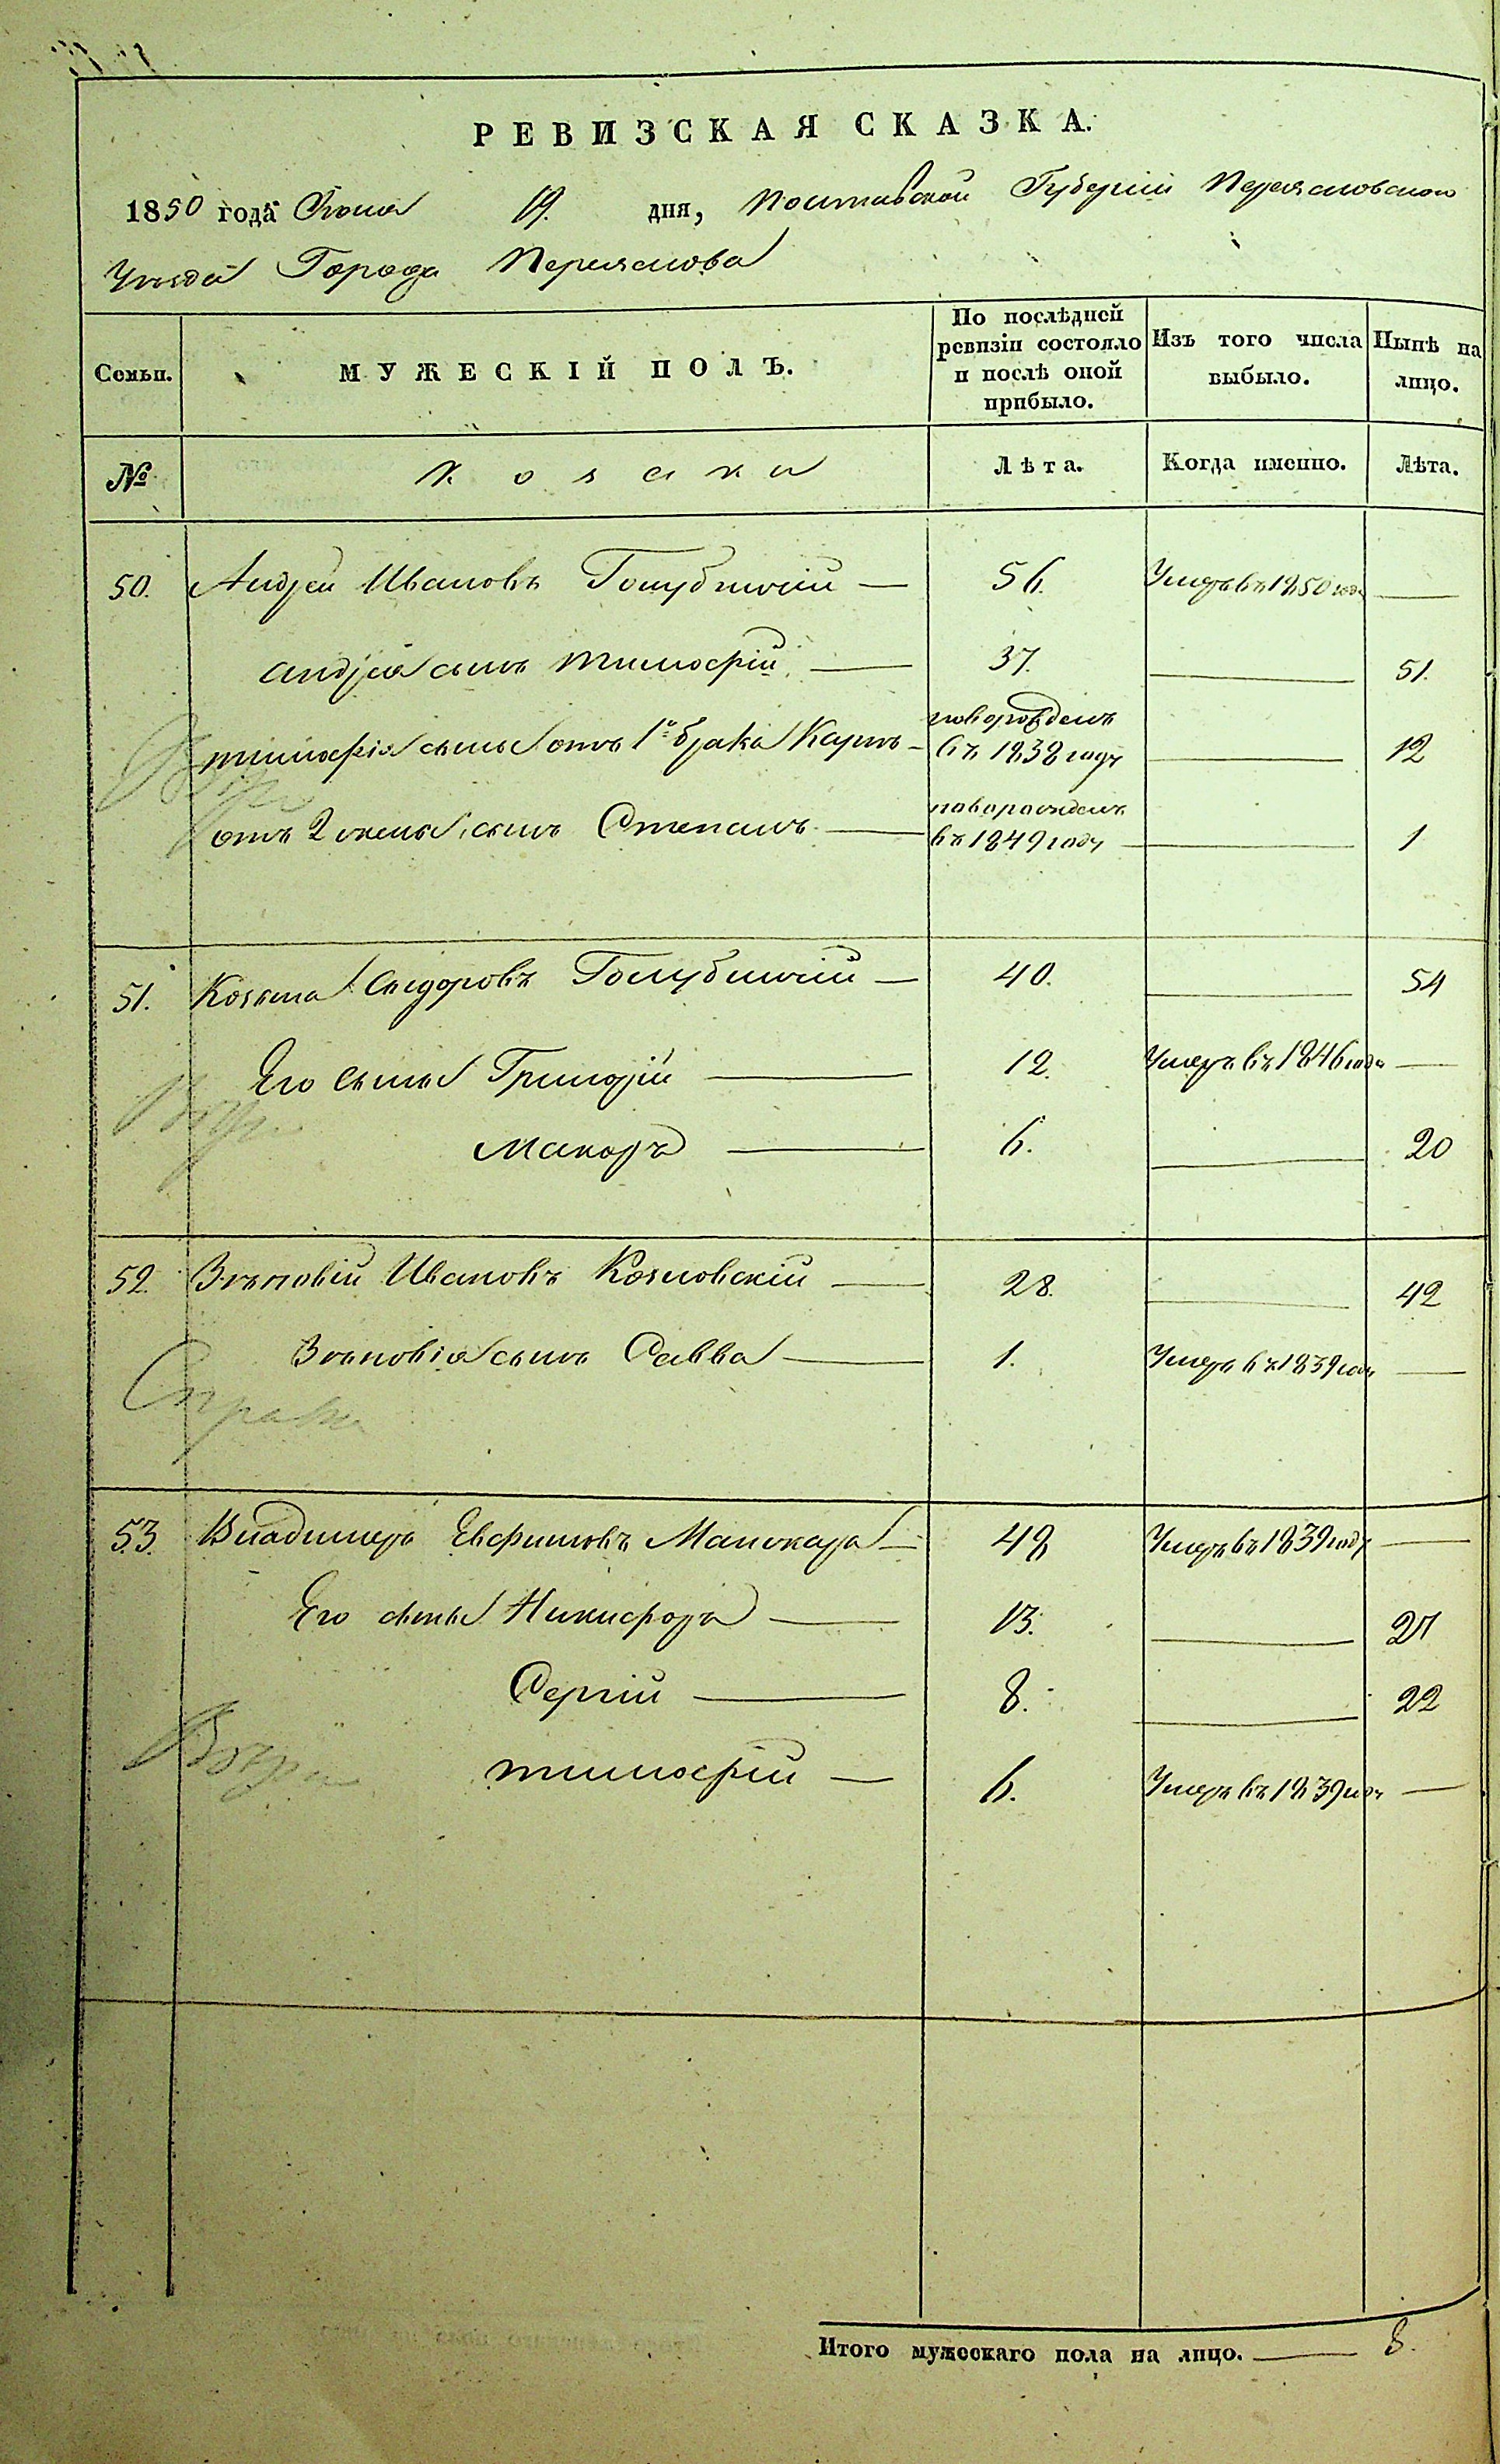 РЕВИЗСКАЯ СКАЗКА.
1850 года Июня 19. дня, Полтавской Губерніи Переясловского
Уезда Города Переяслова
Семьи. МУЖЕСКІЙ ПОЛЪ. По послѣдней ревизіи состояло и послѣ оной прибыло. Изъ того числа выбыло. Нынѣ на лицо.
№ козаки Лѣта. Когда именно. Лѣта.
50. Андрей Ивановъ Голубничій — 56. Умеръ въ 1850 годе —
Андрея сынъ Тимофій — 37. — 51.
Тимофія сынъ отъ 1го брака Карпъ — новорожденъ въ 1838 году — 12
отъ 2 жены сынъ Степанъ — новорожденъ въ 1849 году — 1
51. Козьма Сидоровъ Голубничій — 40. — 54
Его сыны Григорій — 12. Умеръ въ 1846 годе —
Макаръ — 6. — 20
52. Зѣновій Ивановъ Козловскій — 28. — 42
Зѣновія сынъ Савва — 1. Умеръ въ 1839 году —
Справка
53. Владимеръ Евфимовъ Манжара — 48 Умеръ въ 1839 году —
Его сыны Никифоръ — 13. — 27
Сергій — 8. — 22
Тимофій — 6. Умеръ въ 1839 году —
Итого мужескаго пола на лицо. — 8.